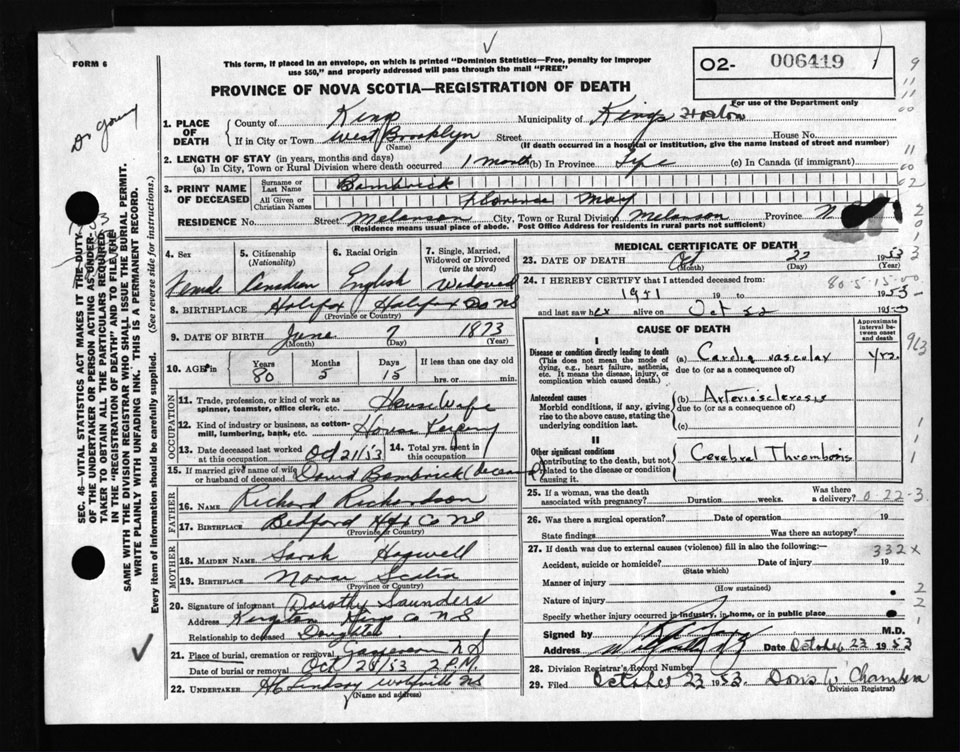 FORM 6
This form, if placed in an envelope, on which is printed "Dominion Statistics—Free, penalty for improper
use $50," and properly addressed will pass through the mail "FREE"
O2- 006419
For use of the Department only
PROVINCE OF NOVA SCOTIA—REGISTRATION OF DEATH
1. PLACE OF DEATH
County of Kings Municipality of Kings
If in City or Town West Brooklyn Street House No.
(Name) (If death occurred in a hospital or institution, give the name instead of street and number)
2. LENGTH OF STAY (in years, months and days)
(a) In City, Town or Rural Division where death occurred 1 month (b) In Province Life (c) In Canada (if immigrant)
3. PRINT NAME OF DECEASED
Surname or Last Name Bambrick
All Given or Christian Names Florence May
RESIDENCE No. Street Melanson City, Town or Rural Division Melanson Province N
(Residence means usual place of abode. Post Office Address for residents in rural parts not sufficient)
4. Sex Female
5. Citizenship (Nationality) Canadian
6. Racial Origin English
7. Single, Married, Widowed or Divorced (write the word) Widowed
8. BIRTHPLACE Halifax Halifax Co NS
(Province or Country)
9. DATE OF BIRTH June 7 1873
(Month) (Day) (Year)
10. AGE Years 80 Months 5 Days 15 If less than one day old
hrs. or min.
OCCUPATION
11. Trade, profession, or kind of work as spinner, teamster, office clerk, etc. House Wife
12. Kind of industry or business, as cotton-mill, lumbering, bank, etc. House Keeping
13. Date deceased last worked at this occupation Oct 21/53
14. Total yrs. spent in this occupation
15. If married give name of wife or husband of deceased David Bambrick (deceased)
FATHER
16. NAME Richard Richardson
17. BIRTHPLACE Bedford Hfx Co NS
(Province or Country)
MOTHER
18. MAIDEN NAME Sarah
19. BIRTHPLACE Nova Scotia
(Province or Country)
20. Signature of informant Dorothy Saunders
Address Kingston Kings Co NS
Relationship to deceased Daughter
21. Place of burial, cremation or removal Gaspereau NS
Date of burial or removal Oct /53 2 P.M.
22. UNDERTAKER Lindsay Wolfville NS
(Name and address)
MEDICAL CERTIFICATE OF DEATH
23. DATE OF DEATH Oct 22 1953
(Month) (Day) (Year)
24. I HEREBY CERTIFY that I attended deceased from:
80-5-15-00
1951 19 to 1953
and last saw her alive on Oct 22 1953
CAUSE OF DEATH
Approximate interval between onset and death
I
Disease or condition directly leading to death
(This does not mean the mode of dying, e.g., heart failure, asthenia, etc. It means the disease, injury, or complication which caused death.)
(a) Cardio vascular yrs.
due to (or as a consequence of)
Antecedent causes
Morbid conditions, if any, giving rise to the above cause, stating the underlying condition last.
(b) Arteriosclerosis
due to (or as a consequence of)
(c)
II
Other significant conditions
contributing to the death, but not related to the disease or condition causing it.
Cerebral Thrombosis
25. If a woman, was the death associated with pregnancy? Duration weeks. Was there a delivery? 0 22-3
26. Was there a surgical operation? Date of operation 19
State findings Was there an autopsy?
27. If death was due to external causes (violence) fill in also the following:—
332x
Accident, suicide or homicide? Date of injury 19
(State which)
Manner of injury
(How sustained)
Nature of injury
Specify whether injury occurred in industry, in home, or in public place
Signed by M.D.
Address Wolfville Date October 23 1953
28. Division Registrar's Record Number
29. Filed October 23 1953. W Chambers
(Division Registrar)
SEC. 46—VITAL STATISTICS ACT MAKES IT THE DUTY
OF THE UNDERTAKER OR PERSON ACTING AS UNDER-
TAKER TO OBTAIN ALL THE PARTICULARS REQUIRED
IN THE "REGISTRATION OF DEATH" AND TO FILE THE
SAME WITH THE DIVISION REGISTRAR WHO SHALL ISSUE THE BURIAL PERMIT.
WRITE PLAINLY WITH UNFADING INK. THIS IS A PERMANENT RECORD.
Every item of information should be carefully supplied. (See reverse side for instructions.)